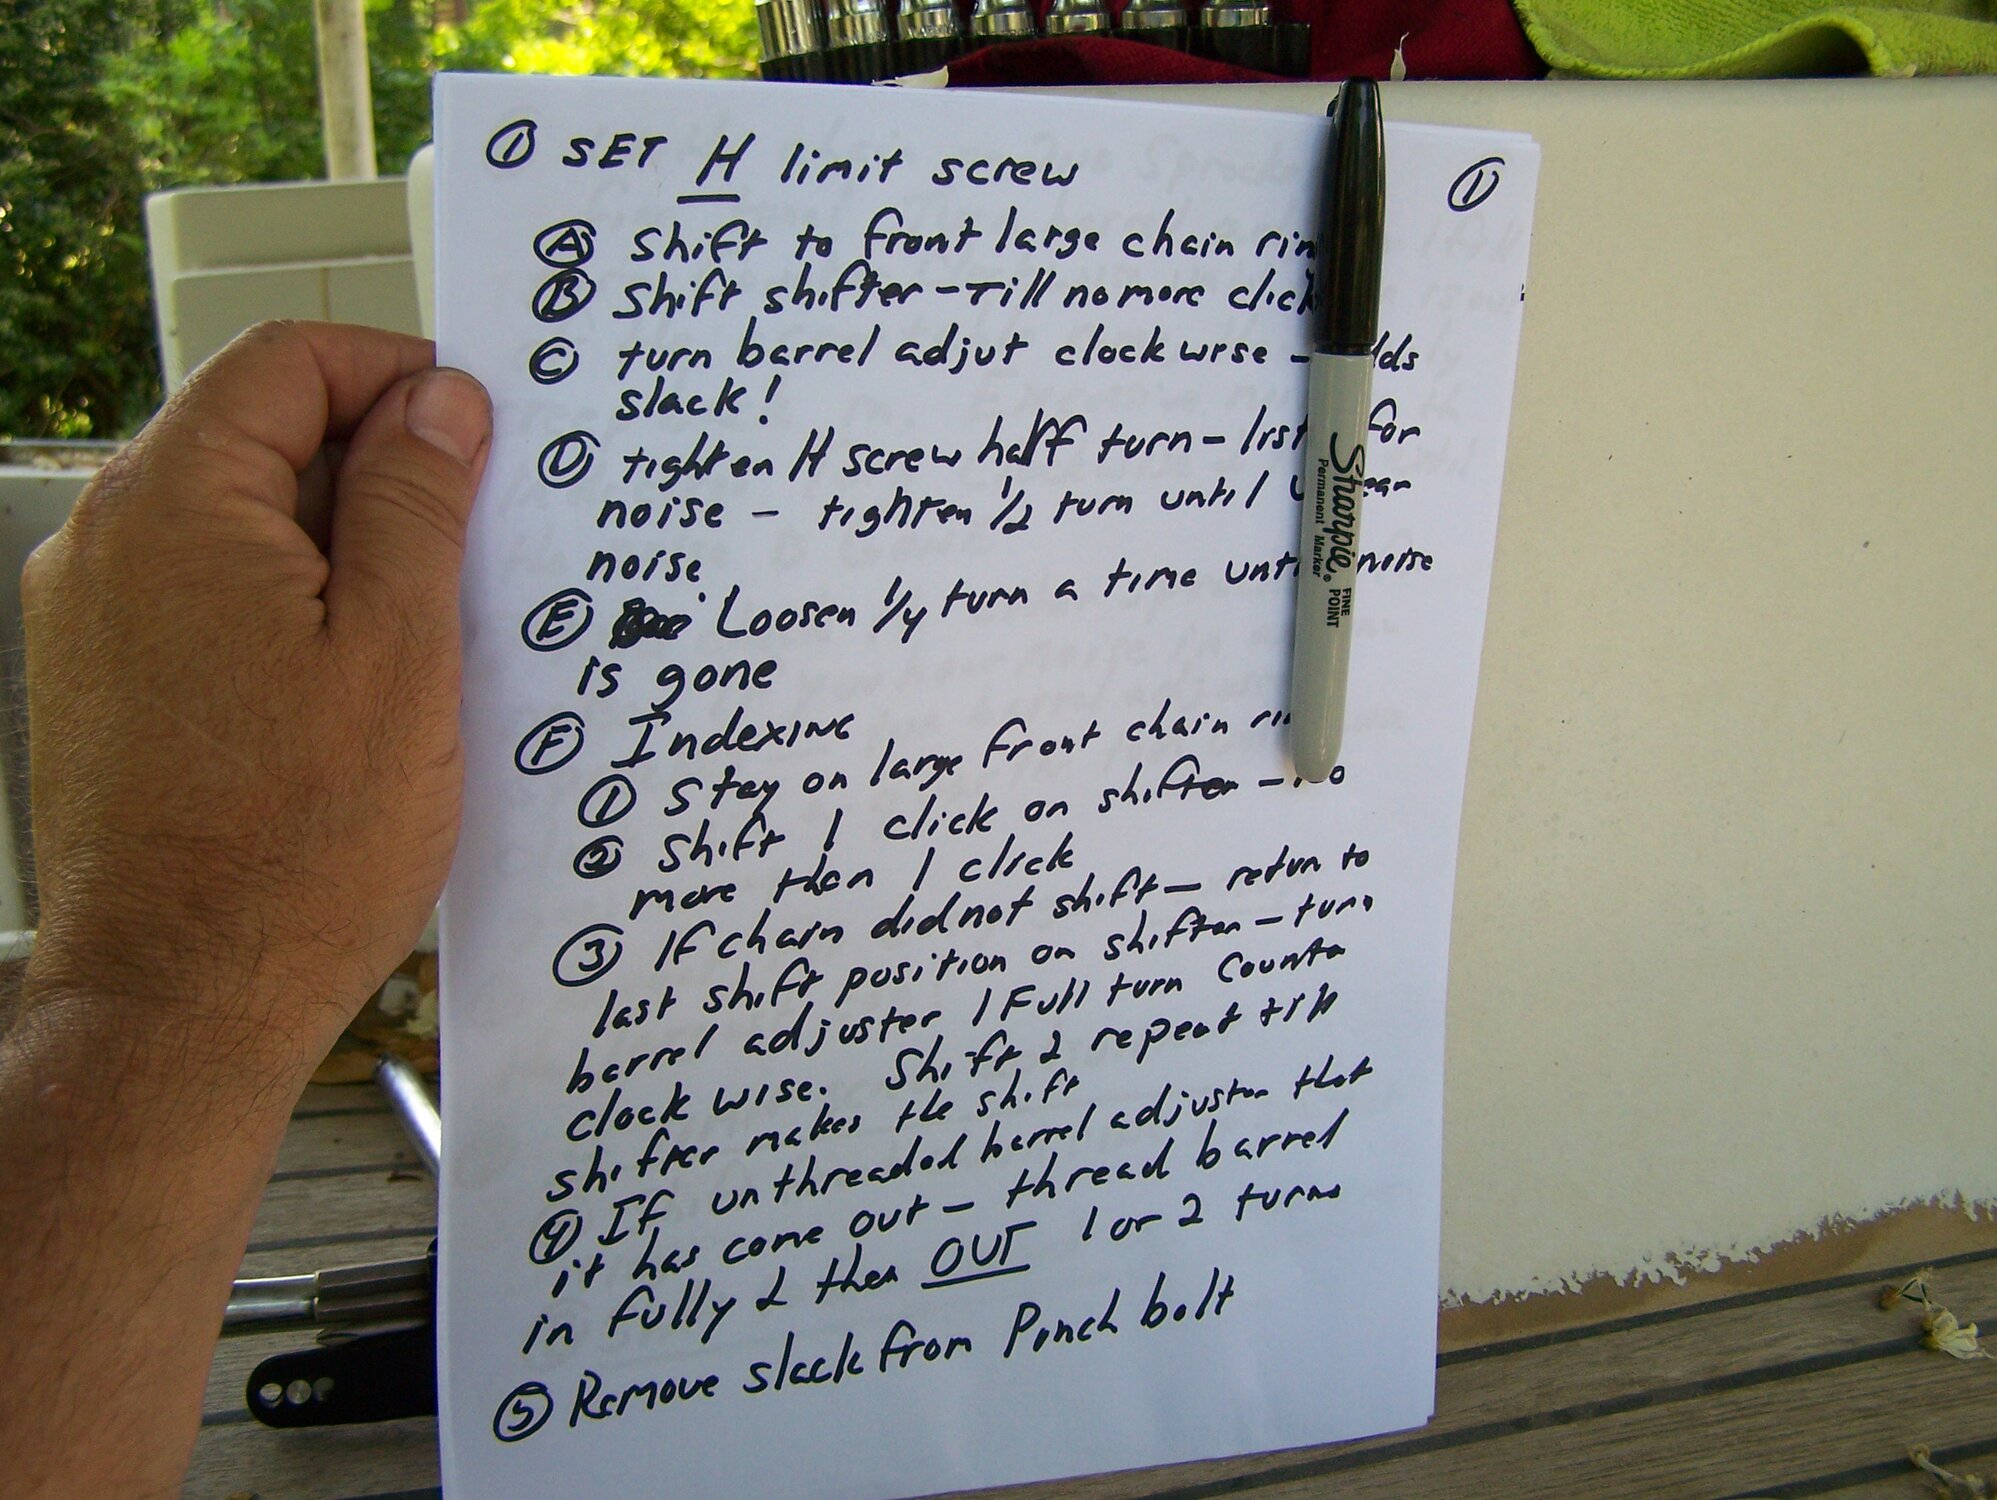 ① SET H limit screw
①
Ⓐ Shift to front large chain rin
Ⓑ Shift shifter - Till no more click
Ⓒ turn barrel adjut clockwise - lds
slack!
Ⓓ tighten H screw half turn - list for
noise - tighten 1/2 turn until
noise
Ⓔ Loosen 1/4 turn a time unti noise
is gone
Ⓕ Indexing
① Stay on large front chain rin
② Shift 1 click on shifter -
more than 1 click
③ If chain did not shift - return to
last shift position on shifter - turn
barrel adjuster 1 Full turn Counter
clock wise. Shift & repeat till
shifter makes the shift
④ If unthreaded barrel adjuster that
it has come out - thread barrel
in fully & then OUT 1 or 2 turns
⑤ Remove slack from Pinch bolt
Sharpie
Permanent Marker
FINE
POINT